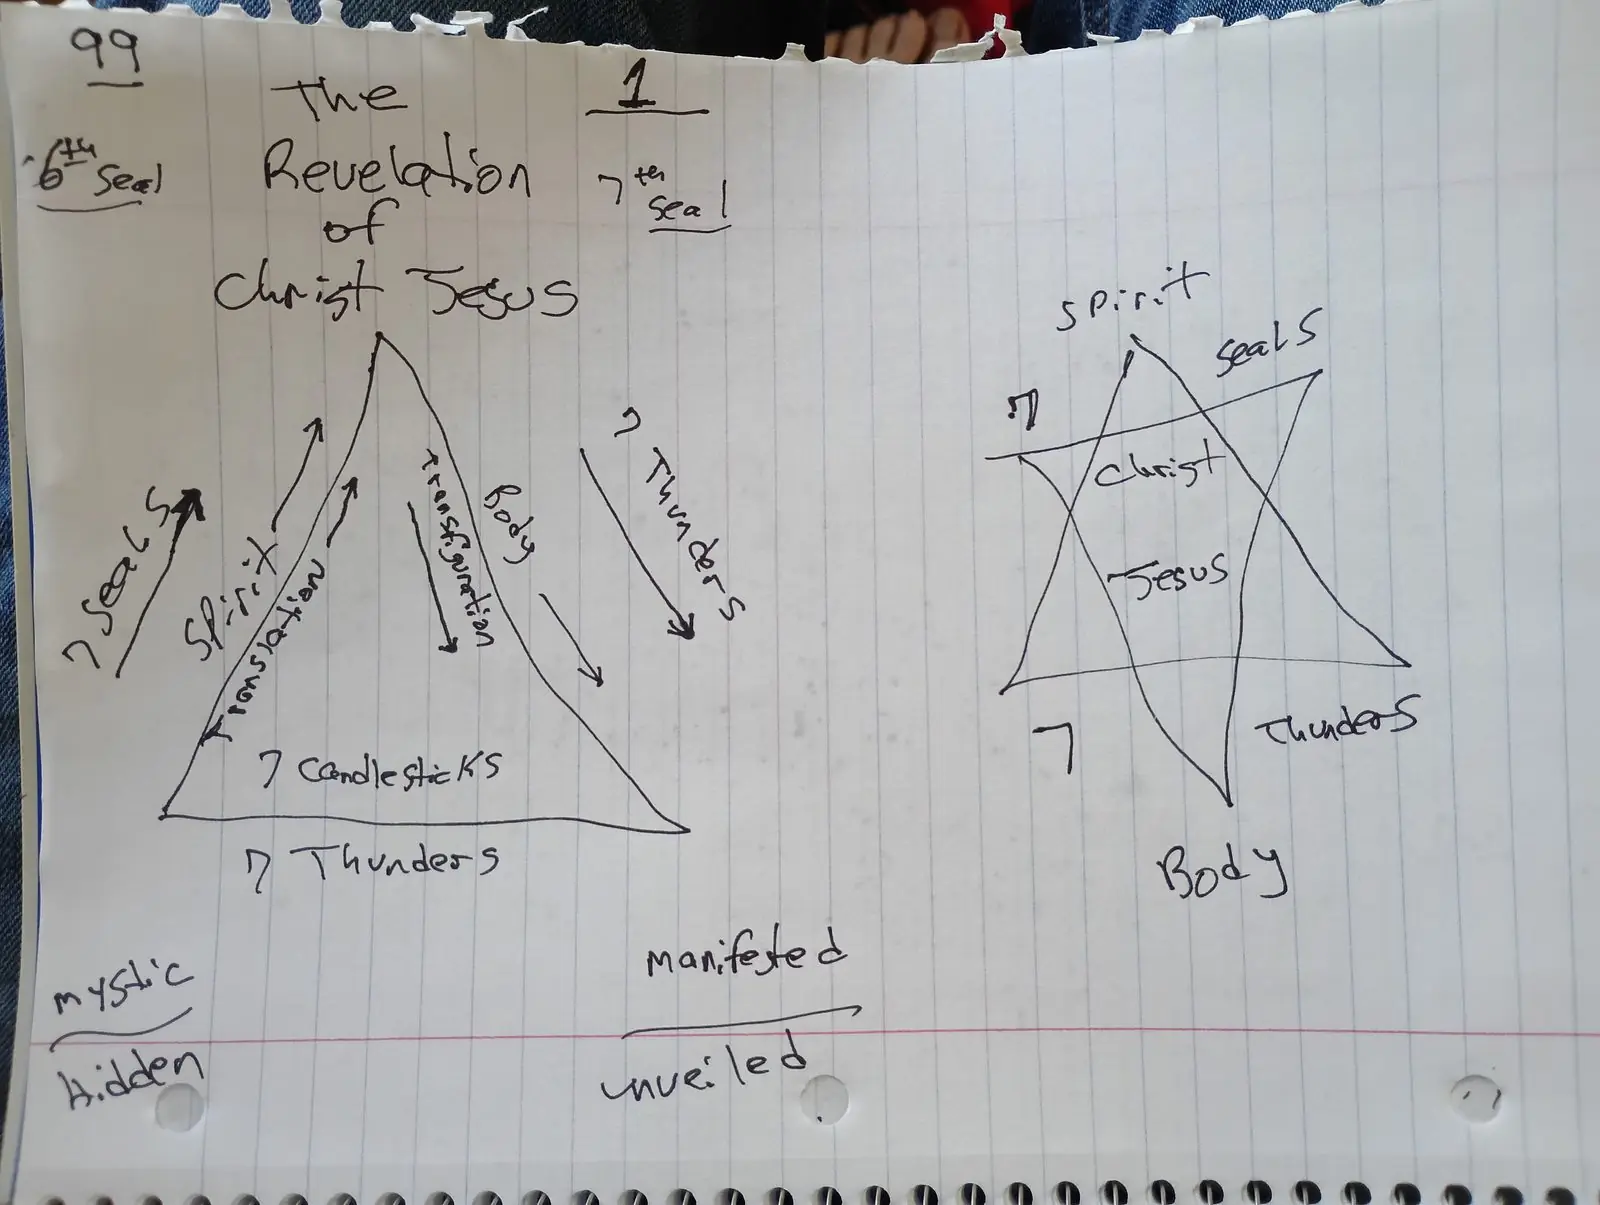 99
6th seal
The
Revelation
of
Christ Jesus
1
7th
seal
7 Seals
Spirit
Translation
Transfiguration
Body
7 Thunders
7 Candlesticks
7 Thunders
Spirit
7 Seals
Christ
Jesus
7 Thunders
Body
mystic
hidden
manifested
unveiled